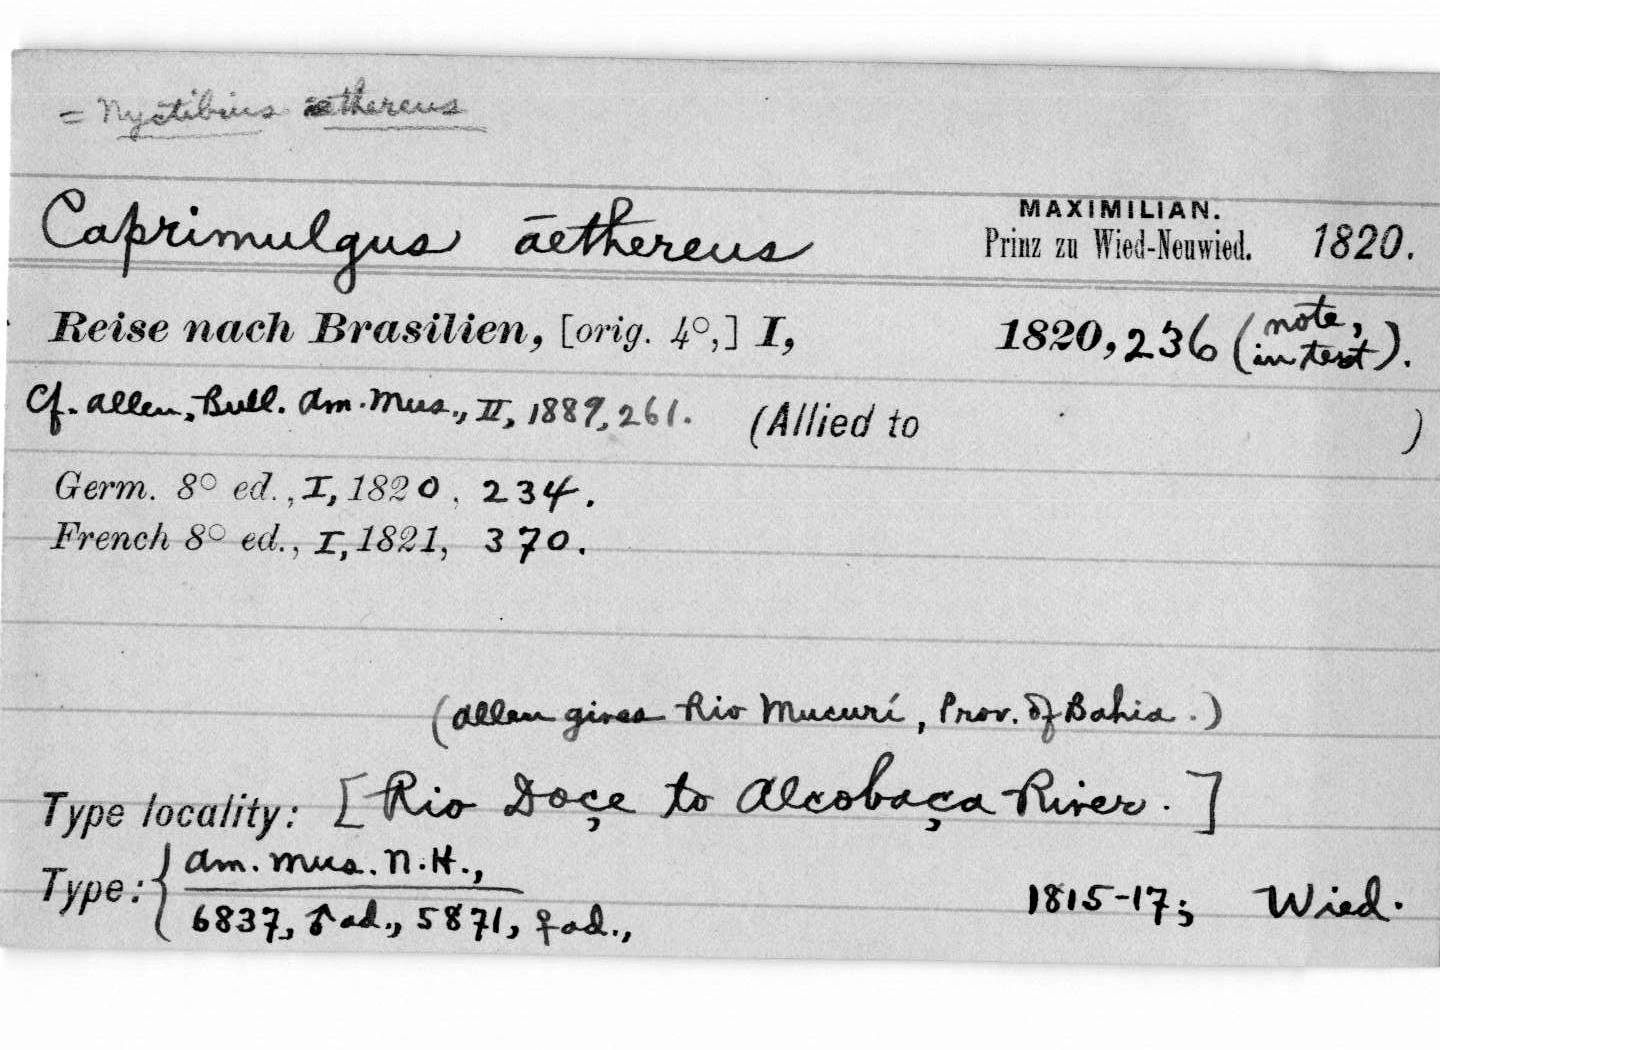 = Nyctibius æthereus
Caprimulgus æthereus MAXIMILIAN. Prinz zu Wied-Neuwied. 1820.
Reise nach Brasilien, [orig. 4°,] I, 1820, 236 (note, in text).
Cf. Allen, Bull. Am. Mus., II, 1889, 261. (Allied to )
Germ. 8° ed., I, 1820, 234.
French 8° ed., I, 1821, 370.
(Allen gives Rio Mucurí, Prov. of Bahia.)
Type locality: [Rio Doçe to Alcobaça River.]
Type: { Am. Mus. N.H.,
6837, ♂ ad., 5871, ♀ ad., 1815-17; Wied.